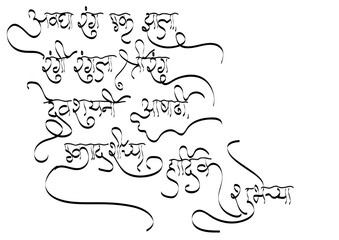 अवघा रंग एक झाला
रंगी रंगला श्रीरंग
देवशयनी आषाढी
एकादशीच्या
हार्दिक
शुभेच्या